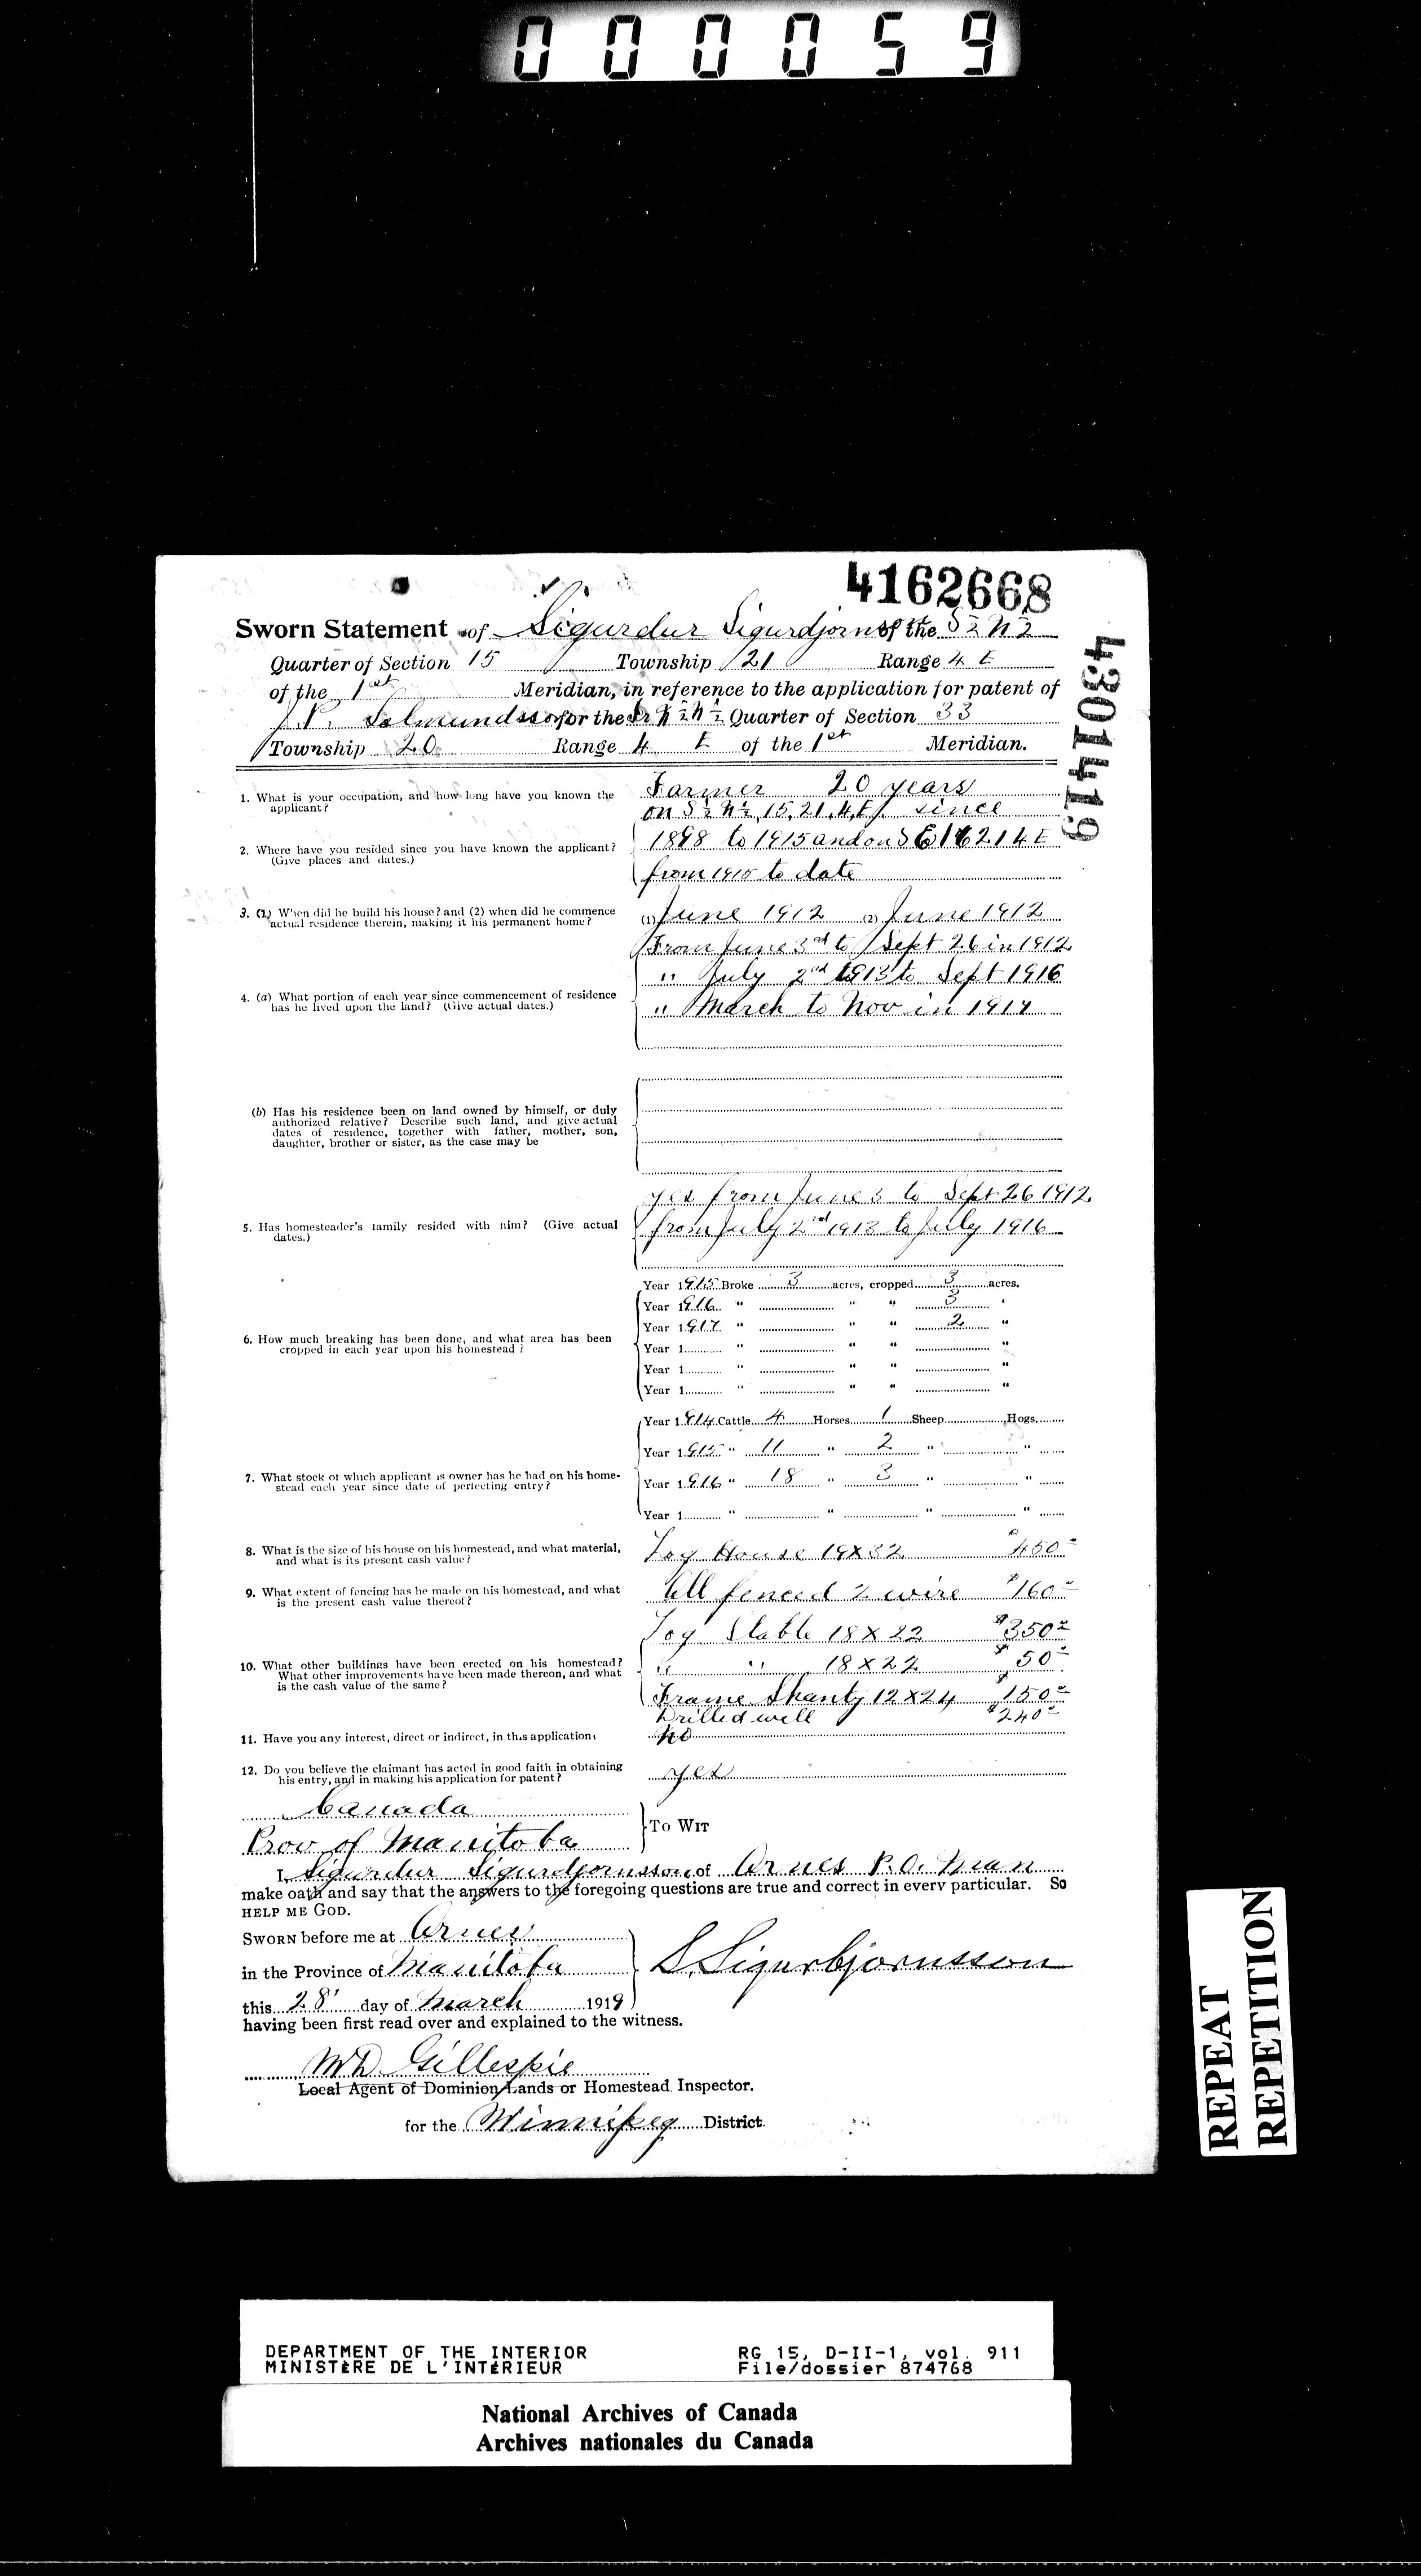 000059
4162668
4301419
Sworn Statement of Sigurdur Sigurdjorns of the S ½ N ½
Quarter of Section 15 Township 21 Range 4 E
of the 1st Meridian, in reference to the application for patent of
J.P. Solmundsson for the N ½ N ½ Quarter of Section 33
Township 20 Range 4 E of the 1st Meridian.
1. What is your occupation, and how long have you known the applicant?
Farmer 20 years
2. Where have you resided since you have known the applicant? (Give places and dates.)
on S ½ N ½, 15, 21, 4, E, since
1898 to 1915 and on SE 16 21 4 E
from 1915 to date
3. (1) When did he build his house? and (2) when did he commence actual residence therein, making it his permanent home?
(1) June 1912 (2) June 1912
4. (a) What portion of each year since commencement of residence has he lived upon the land? (Give actual dates.)
From June 3rd to Sept 26 in 1912
" July 2nd 1913 to Sept 1916
" March to Nov in 1917
(b) Has his residence been on land owned by himself, or duly authorized relative? Describe such land, and give actual dates of residence, together with father, mother, son, daughter, brother or sister, as the case may be
5. Has homesteader's family resided with him? (Give actual dates.)
yes from June 3 to Sept 26 1912
from July 2nd 1913 to July 1916
6. How much breaking has been done, and what area has been cropped in each year upon his homestead?
Year 1915 Broke 3 acres, cropped 3 acres.
Year 1916 " " " 3 "
Year 1917 " " " 2 "
Year 1 " " " "
Year 1 " " " "
Year 1 " " " "
7. What stock of which applicant is owner has he had on his homestead each year since date of perfecting entry?
Year 1914 Cattle 4 Horses 1 Sheep Hogs
Year 1915 " 11 " 2 " "
Year 1916 " 18 " 3 " "
Year 1 " " " "
8. What is the size of his house on his homestead, and what material, and what is its present cash value?
Log House 19 X 32 $450
9. What extent of fencing has he made on his homestead, and what is the present cash value thereof?
All fenced 2 wire $160
10. What other buildings have been erected on his homestead? What other improvements have been made thereon, and what is the cash value of the same?
Log Stable 18 X 22 $350
" " 18 X 22 $50
Frame Shanty 12 X 24 $150
Drilled well $240
11. Have you any interest, direct or indirect, in this application?
No
12. Do you believe the claimant has acted in good faith in obtaining his entry, and in making his application for patent?
yes
Canada
Prov of Manitoba
To Wit
I, Sigurdur Sigurdjornsson of Arnes P.O. Man
make oath and say that the answers to the foregoing questions are true and correct in every particular. So
help me God.
Sworn before me at Arnes
in the Province of Manitoba
this 28' day of March 1919
S. Sigurbjornsson
having been first read over and explained to the witness.
M D Gillespie
Local Agent of Dominion Lands or Homestead Inspector.
for the Winnipeg District.
REPEAT
REPETITION
DEPARTMENT OF THE INTERIOR
MINISTÈRE DE L'INTÉRIEUR
RG 15, D-II-1, vol. 911
File/dossier 874768
National Archives of Canada
Archives nationales du Canada